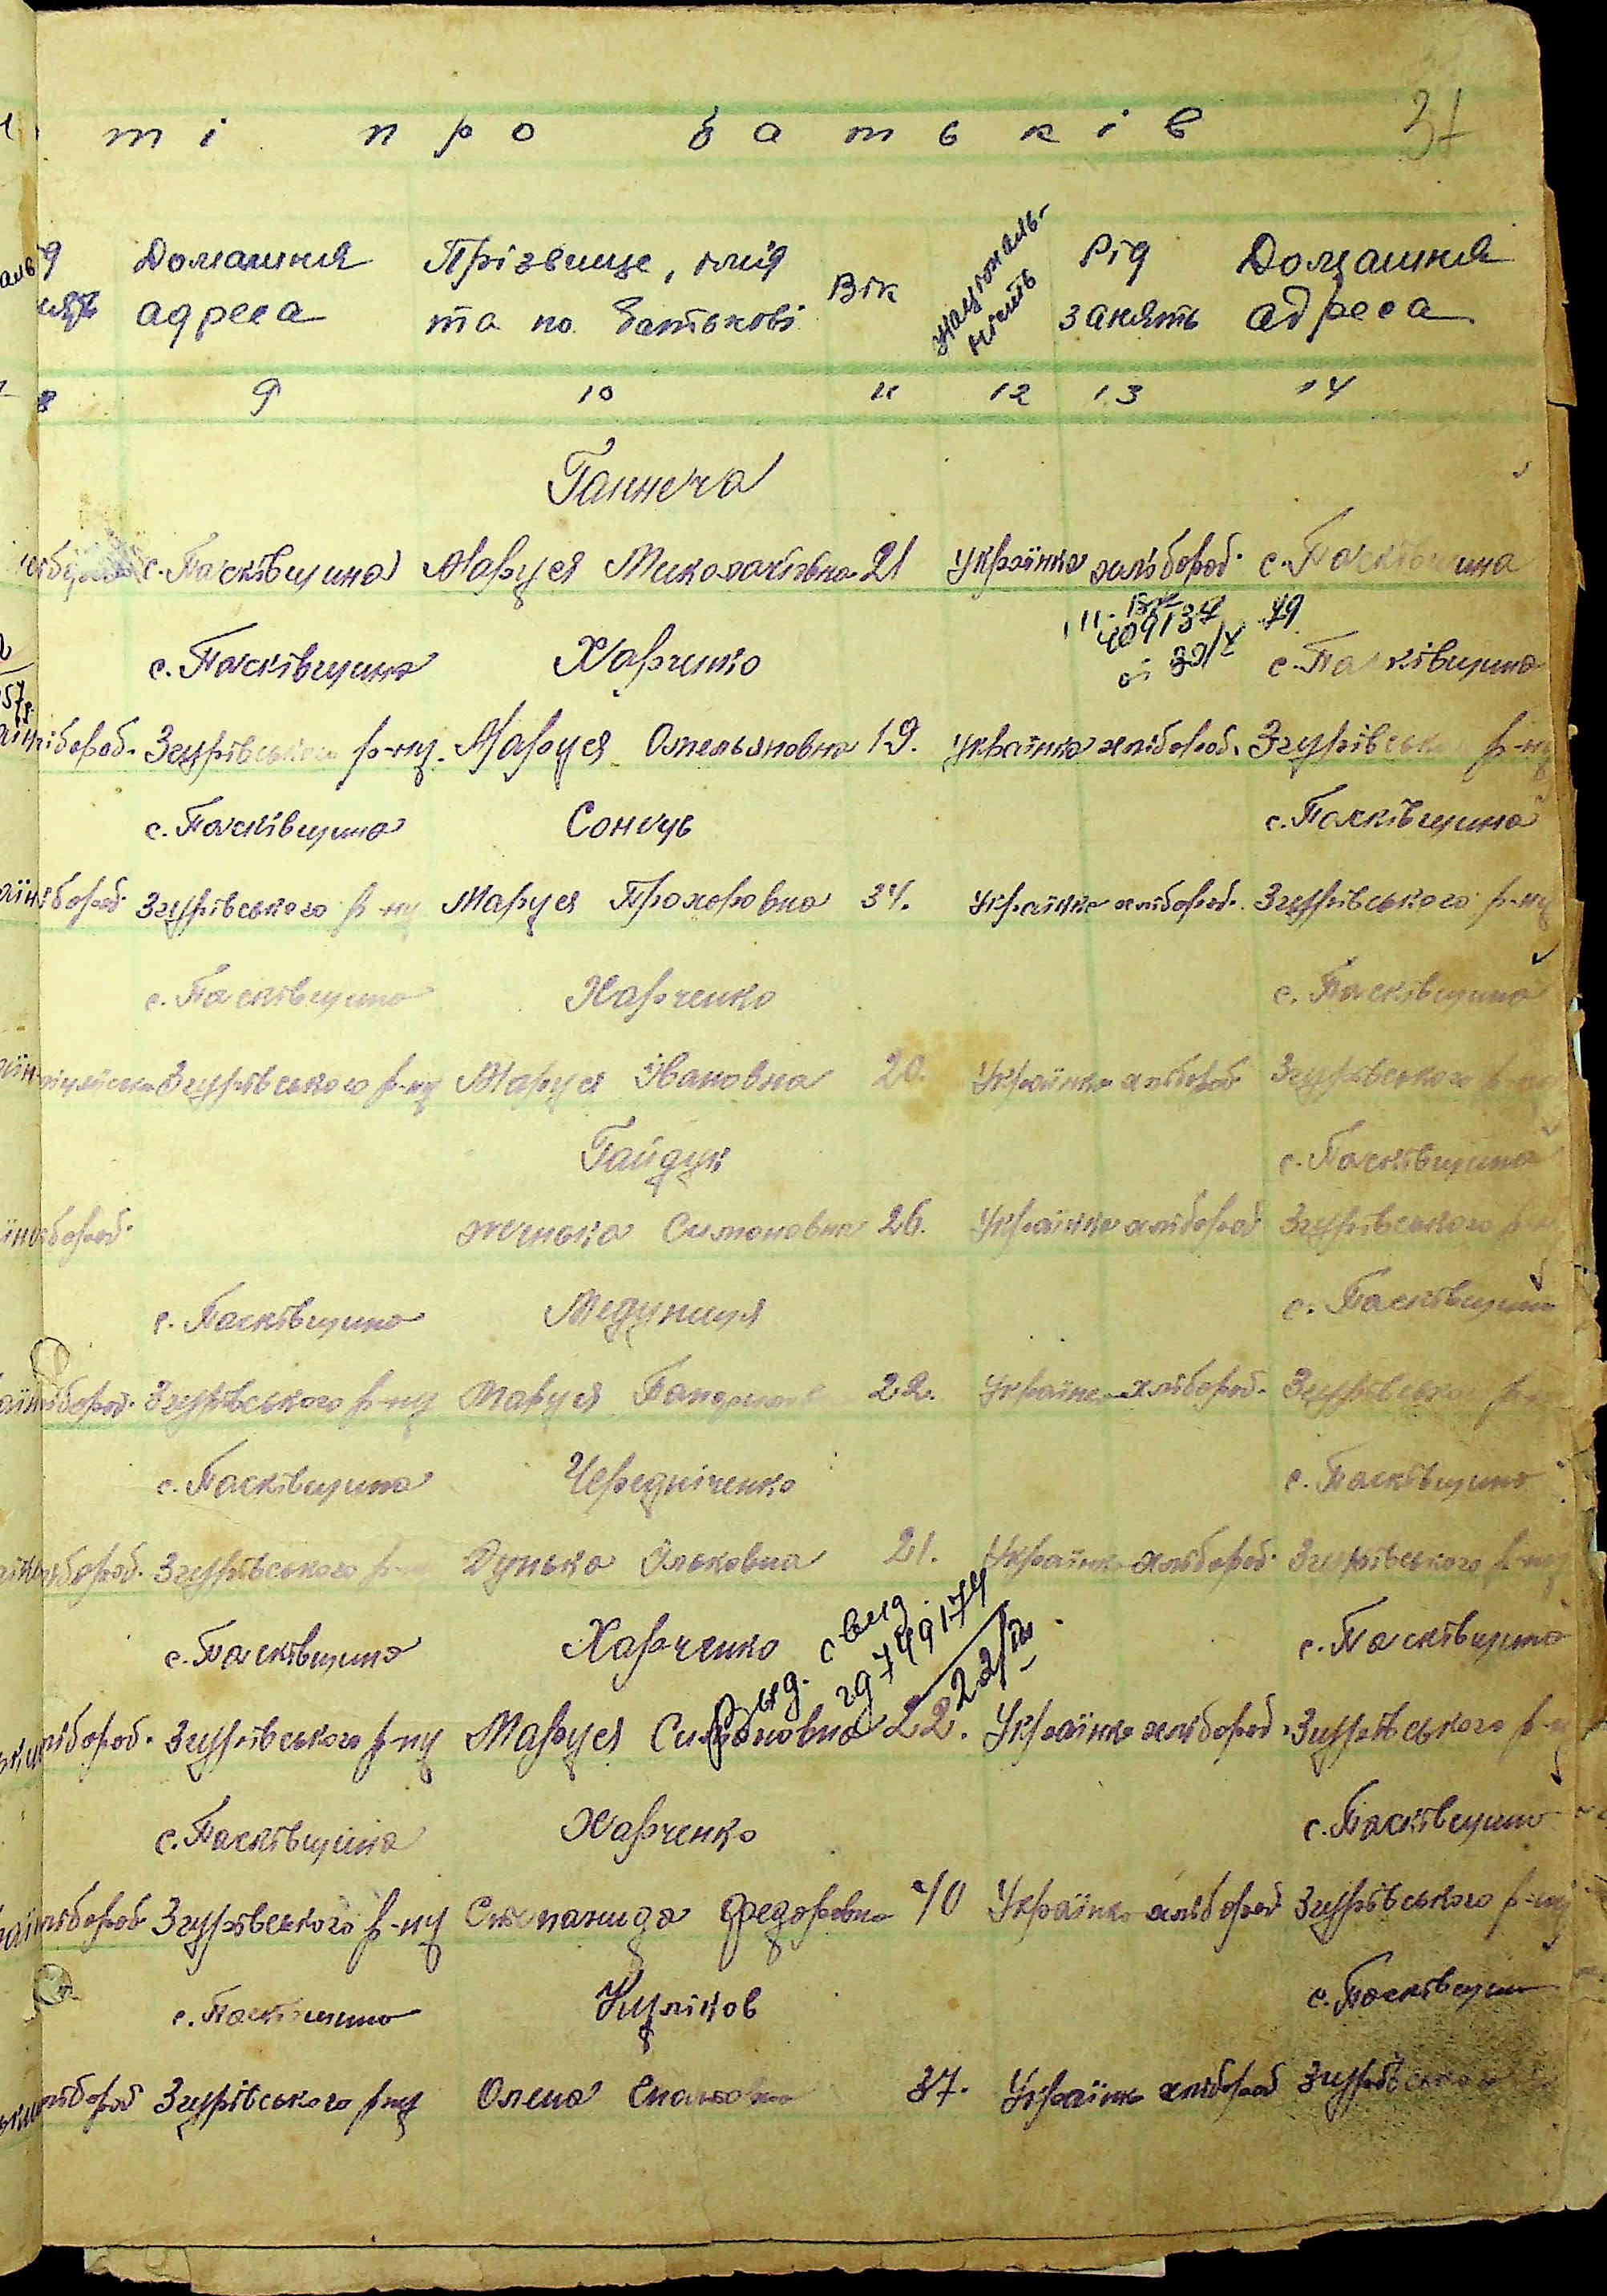 ті про батьків 37
Домашня Прізвище, імя Вік Національ- Рід Домашня
адреса та по батькові ність занять адреса
8 9 10 11 12 13 14
Ганнеча
с. Пасківщина Маруся Миколаївна 21 Українка хлібороб. с. Пасківщина
409134 79
с. Пасківщина Харченко с. Пасківщина
Згурівського р-ну. Маруся Омельяновна 19. Українка хлібороб. Згурівсько р-ну
с. Пасківщина Сонець с. Пасківщина
Згурівського р-ну Маруся Прохоровна 34. Українка хлібороб. Згурівського р-ну
с. Пасківщина Харченко с. Пасківщина
Згурівського р-ну Маруся Івановна 20. Українка хлібороб Згурівського р-ну
Гайдук с. Пасківщина
хлібороб. женька Симоновна 26. Українка хлібороб Згурівського р-ну
с. Пасківщина Медуниця с. Пасківщина
Згурівського р-ну Маруся 22. Українка хлібороб. Згурівського р-ну
с. Пасківщина Чередніченко с. Пасківщина
Згурівського р-ну Дунька Яковна 21. Українка хлібороб. Згурівського р-ну
с. Пасківщина Харченко с. Пасківщина
Вид. свид.
22/IV
Згурівського р-ну Маруся Симоновна 22. Українка хлібороб. Згурівського р-ну
с. Пасківщина Харченко с. Пасківщина
Згурівського р-ну Степанида Федоровна 40 Українка хлібороб Згурівського р-ну
с. Пасківщина Куліков с. Пасківщина
Згурівського р-ну Олена 37. Українка хлібороб Згурівського